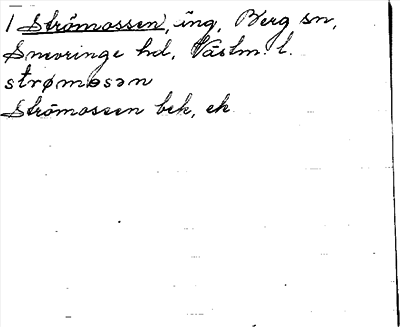 1 Strömossen, äng, Berg sn,
Snevringe hd, Västm. l.
strømosən
Strömossen bek, ek